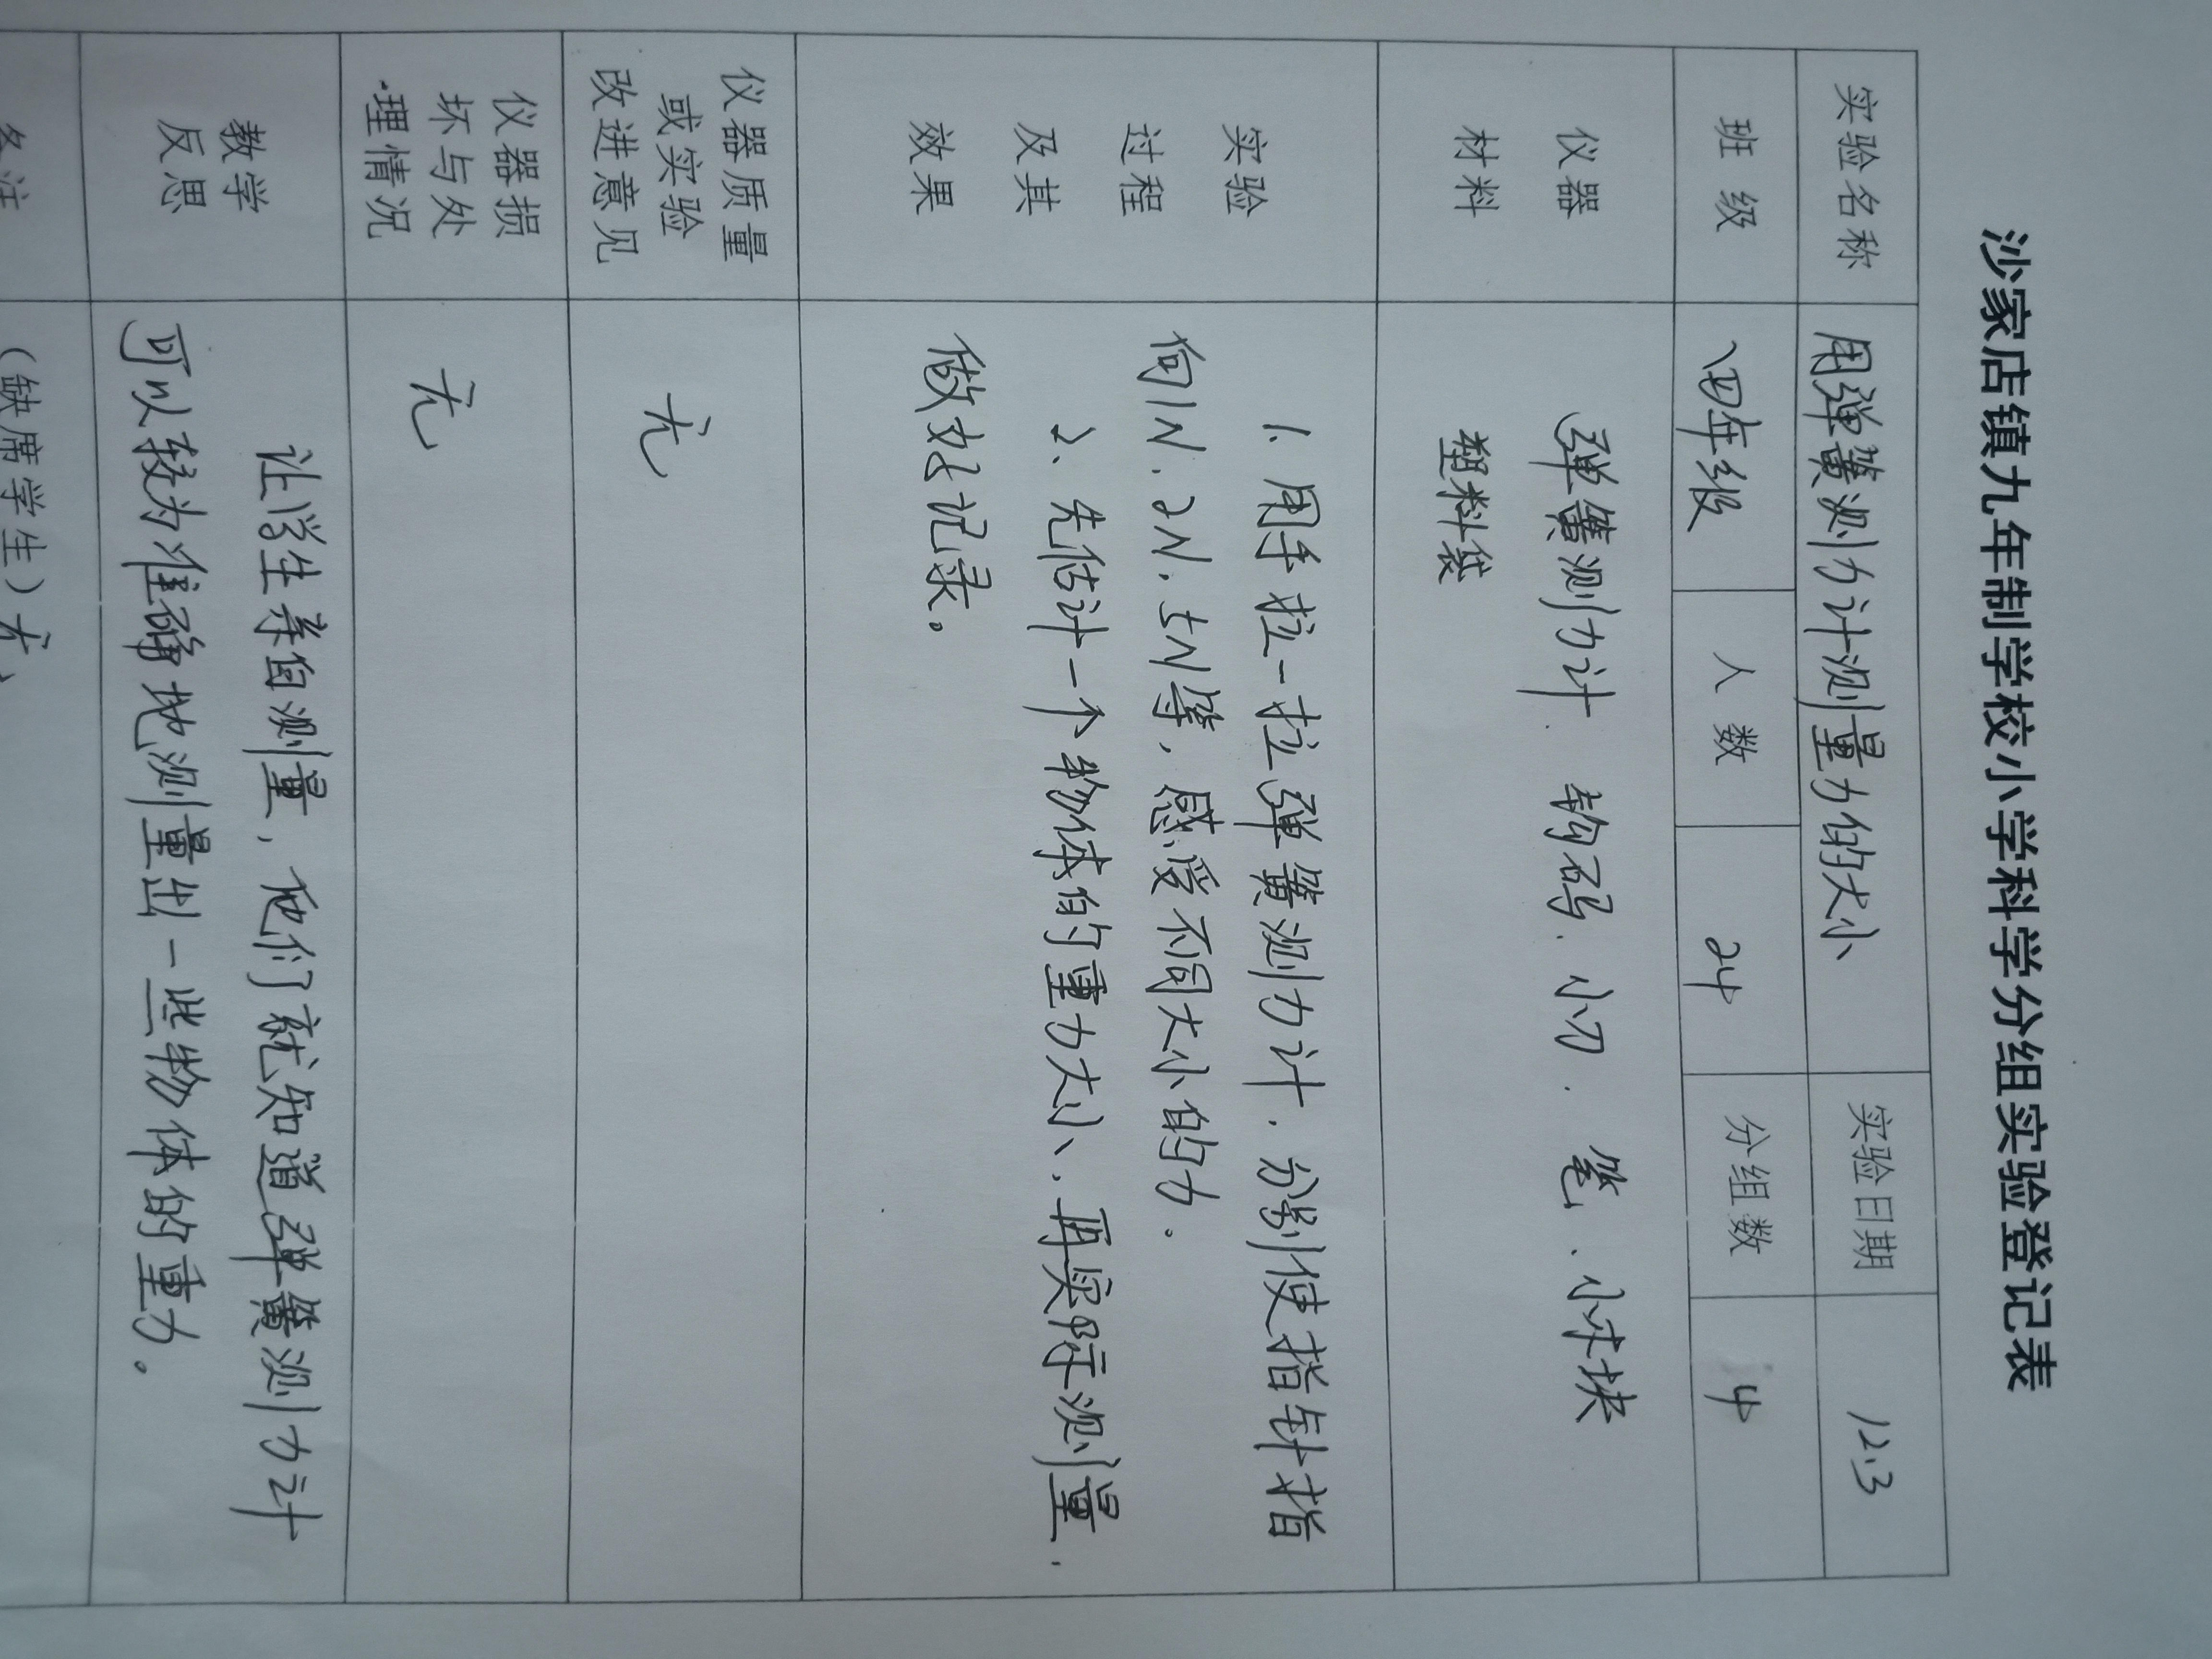 沙家店镇九年制学校小学科学分组实验登记表
实验名称 用弹簧测力计测量力的大小 实验日期 12.3
班级 四年级 人数 24 分组数 4
仪器 弹簧测力计、钩码、小刀、笔、小木块
材料 塑料袋
实验 1、用手拉一拉弹簧测力计，分别使指针指
过程 向1N、2N、5N等，感受不同大小的力。
及其 2、先估计一个物体的重力大小，再实际测量，
效果 做好记录。
仪器质量
或实验 无
改进意见
仪器损
坏与处 无
理情况
教学 让学生亲自测量，他们就知道弹簧测力计
反思 可以较为准确地测量出一些物体的重力。
备注 （缺席学生）无